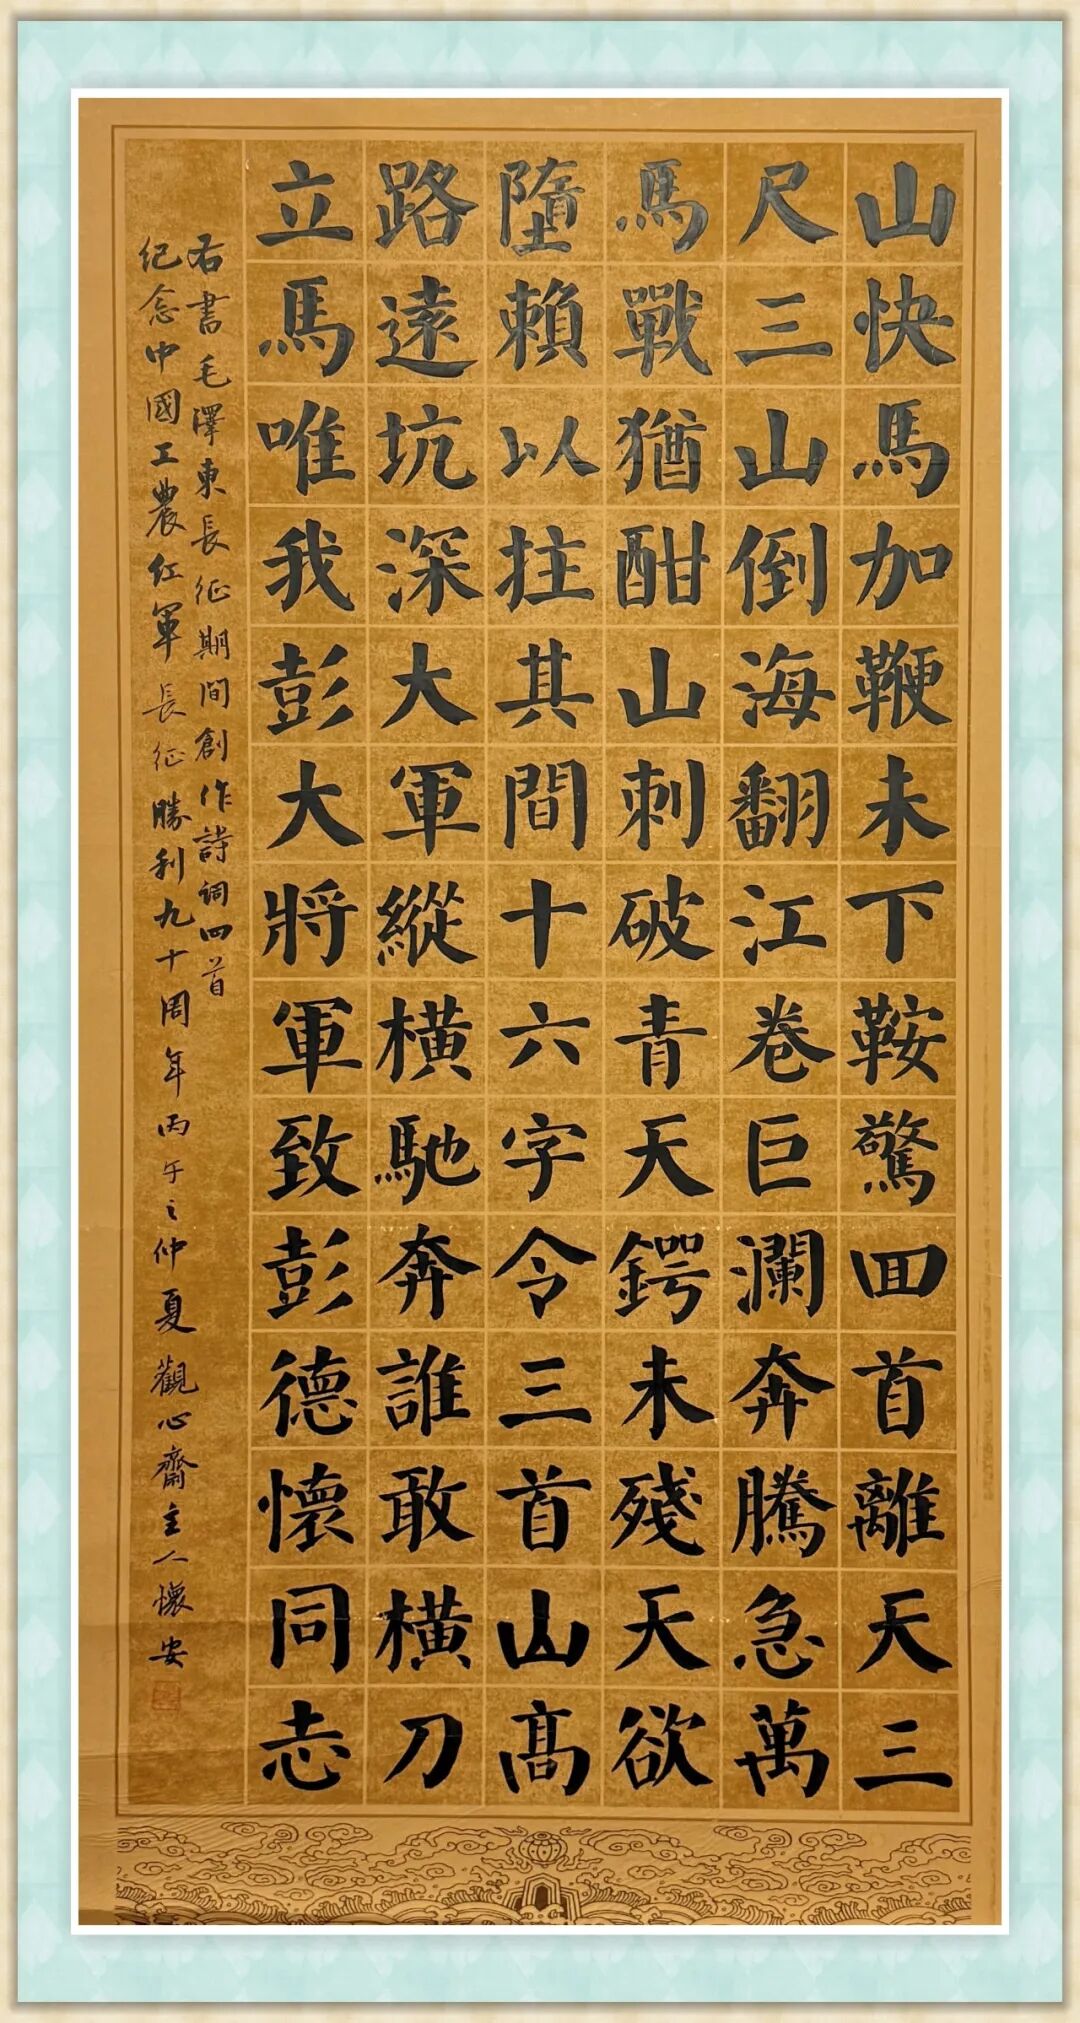 山快馬加鞭未下鞍驚回首離天三
尺三山倒海翻江卷巨瀾奔騰急萬
馬戰猶酣山刺破青天鍔未殘天欲
墮賴以拄其間十六字令三首山高
路遠坑深大軍縱橫馳奔誰敢橫刀
立馬唯我彭大將軍致彭德懷同志
右書毛澤東長征期間創作詩詞四首
紀念中國工農红軍長征勝利九十周年丙午之仲夏觀心齋主人懷安